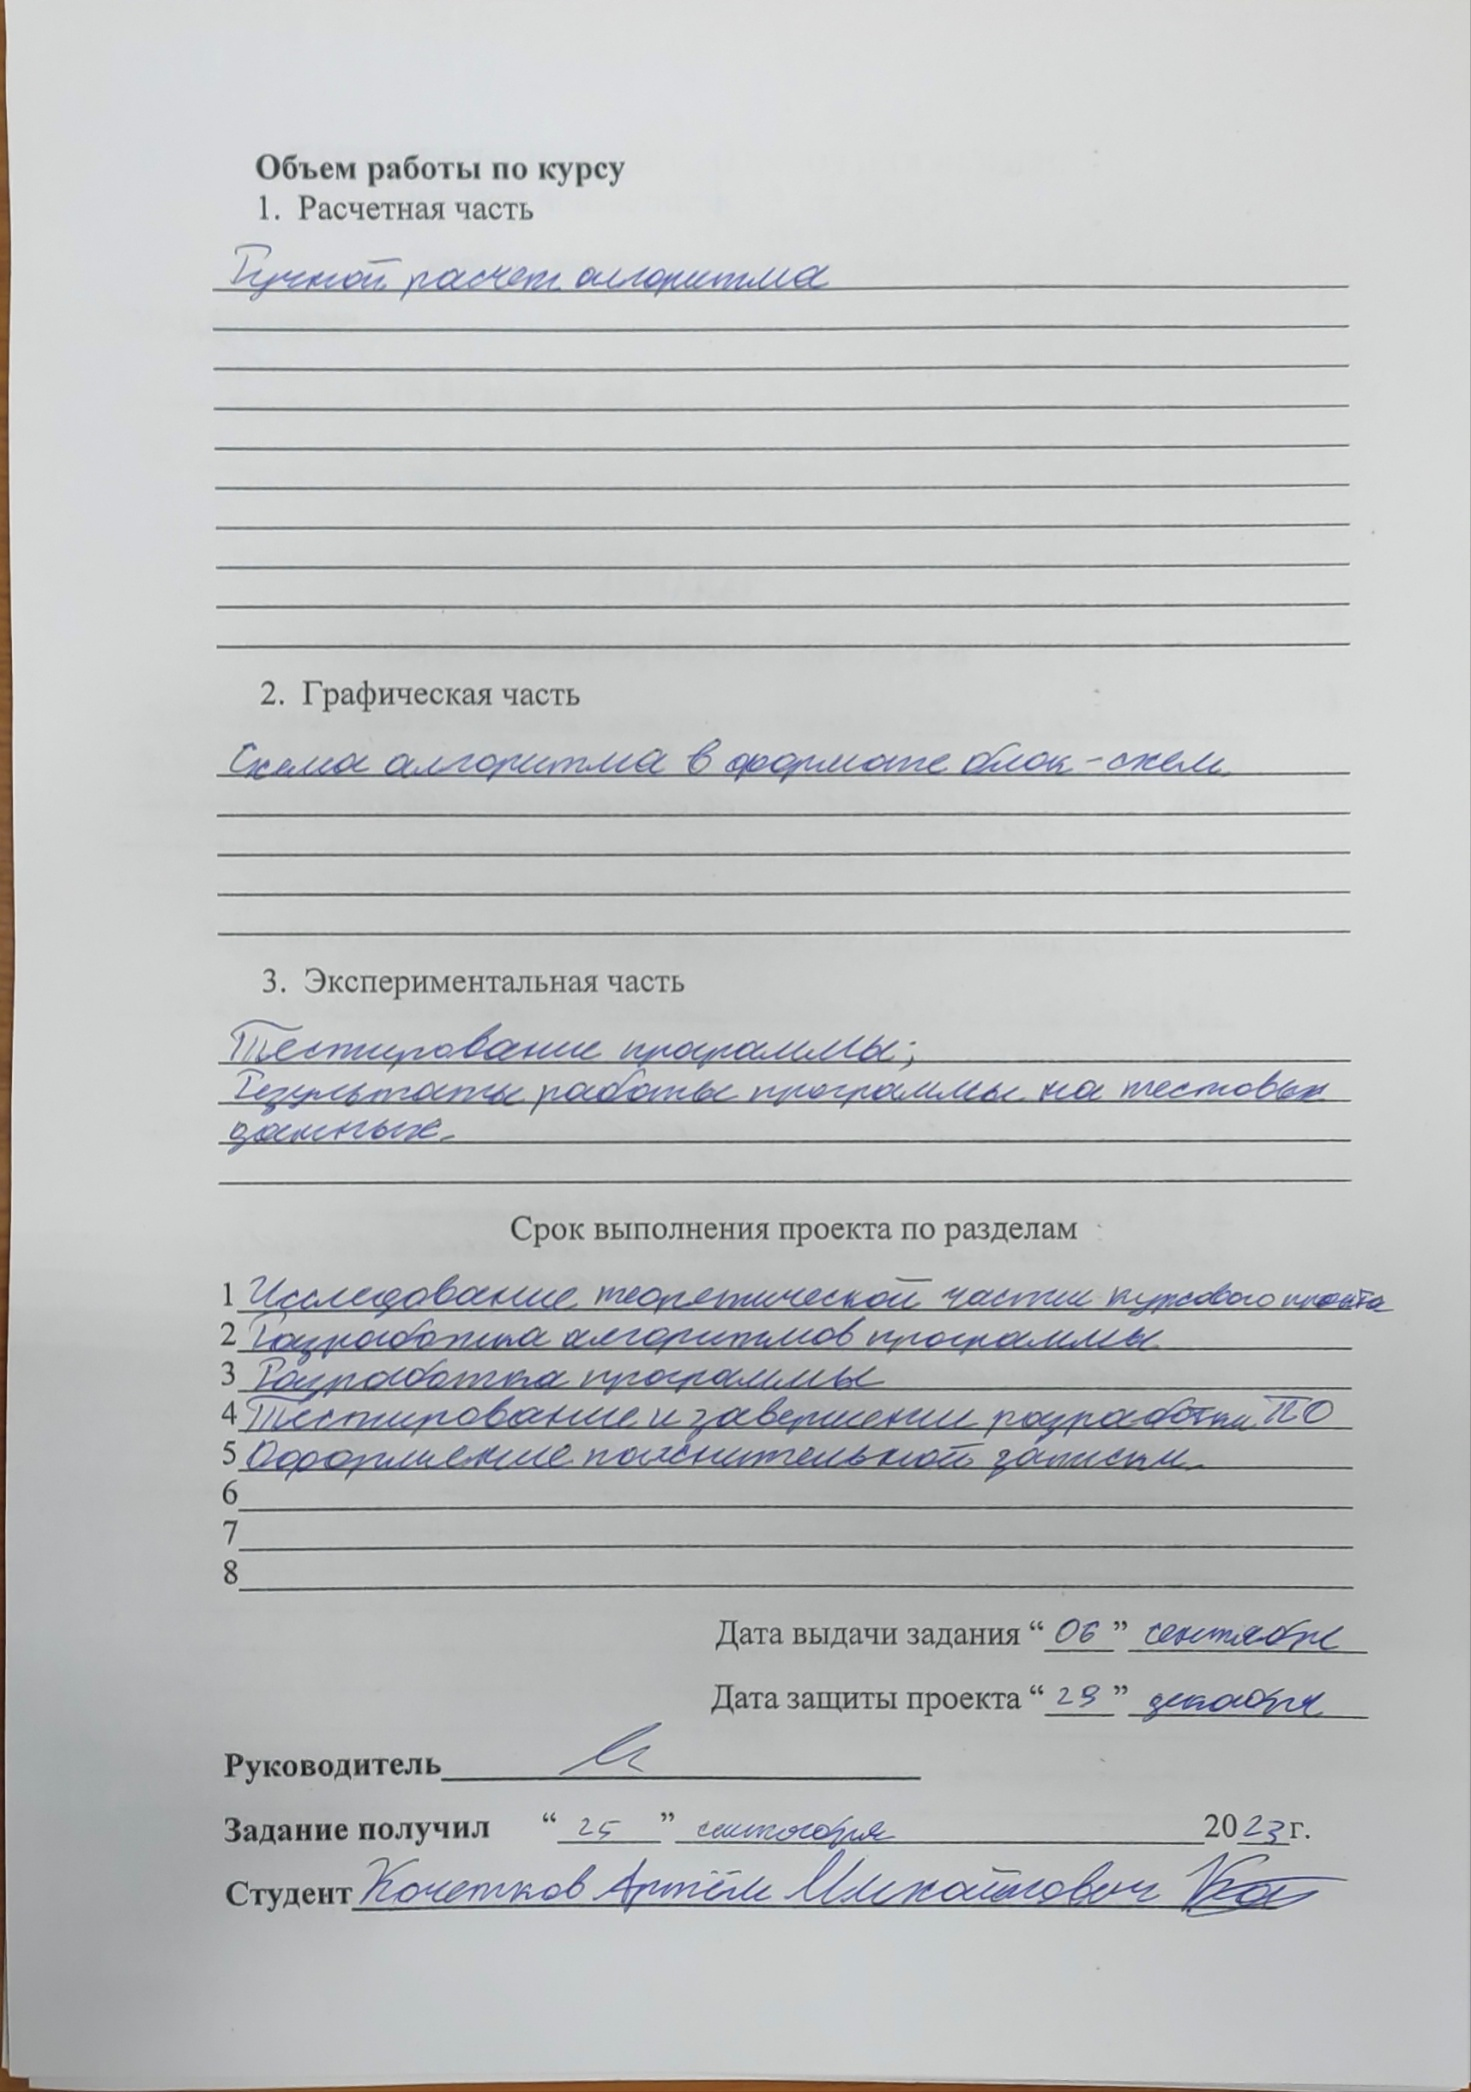 Объем работы по курсу
1. Расчетная часть
Ручной расчет алгоритма
2. Графическая часть
Схема алгоритма в формате блок-схем
3. Экспериментальная часть
Тестирование программы;
Результаты работы программы на тестовых
данных.
Срок выполнения проекта по разделам
1 Исследование теоретической части курсового проекта
2 Разработка алгоритмов программы
3 Разработка программы
4 Тестирование и завершении разработки ПО
5 Оформление пояснительной записки.
6
7
8
Дата выдачи задания “ 06 ” сентября
Дата защиты проекта “ 29 ” декабря
Руководитель
Задание получил “ 25 ” сентября 2023 г.
Студент Кочетков Артём Михайлович